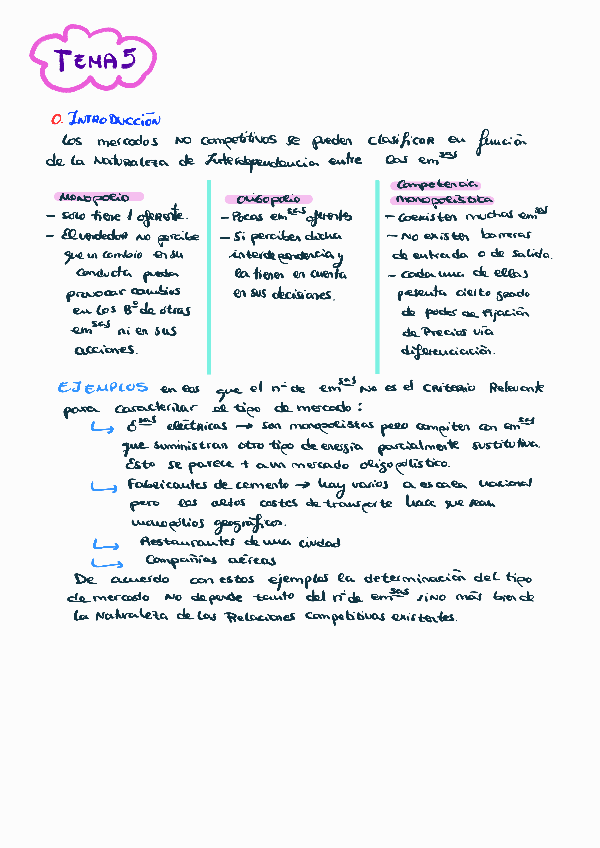 TEMA 5
0. INTRODUCCIÓN
Los mercados no competitivos se pueden clasificar en función
de la Naturaleza de Interdependencia entre las em^sas
MONOPOLIO
- Solo tiene 1 oferente.
- El vendedor no percibe
que un cambio en su
conducta pueda
provocar cambios
en los Bº de otras
em^sas ni en sus
acciones.
OLIGOPOLIO
- Pocas em^sas oferentes
- Si perciben dicha
interdependencia y
la tienen en cuenta
en sus decisiones.
Competencia
monopolística
- Coexisten muchas em^sas
- No existen barreras
de entrada o de salida.
- Cada una de ellas
presenta cierto grado
de poder de Fijación
de Precios vía
diferenciación.
EJEMPLOS en los que el nº de em^sas no es el criterio Relevante
para caracterizar al tipo de mercado:
↳ E^sas eléctricas → son monopolistas pero compiten con em^sas
que suministran otro tipo de energía parcialmente sustitutiva.
Esto se parece + a un mercado oligopolístico.
↳ Fabricantes de cemento → hay varios a escala nacional
pero los altos costes de transporte hace que sean
monopolios geográficos.
↳ Restaurantes de una ciudad
↳ Compañías aéreas
De acuerdo con estos ejemplos la determinación del tipo
de mercado no depende tanto del nº de em^sas sino más bien de
la Naturaleza de las Relaciones Competitivas existentes.